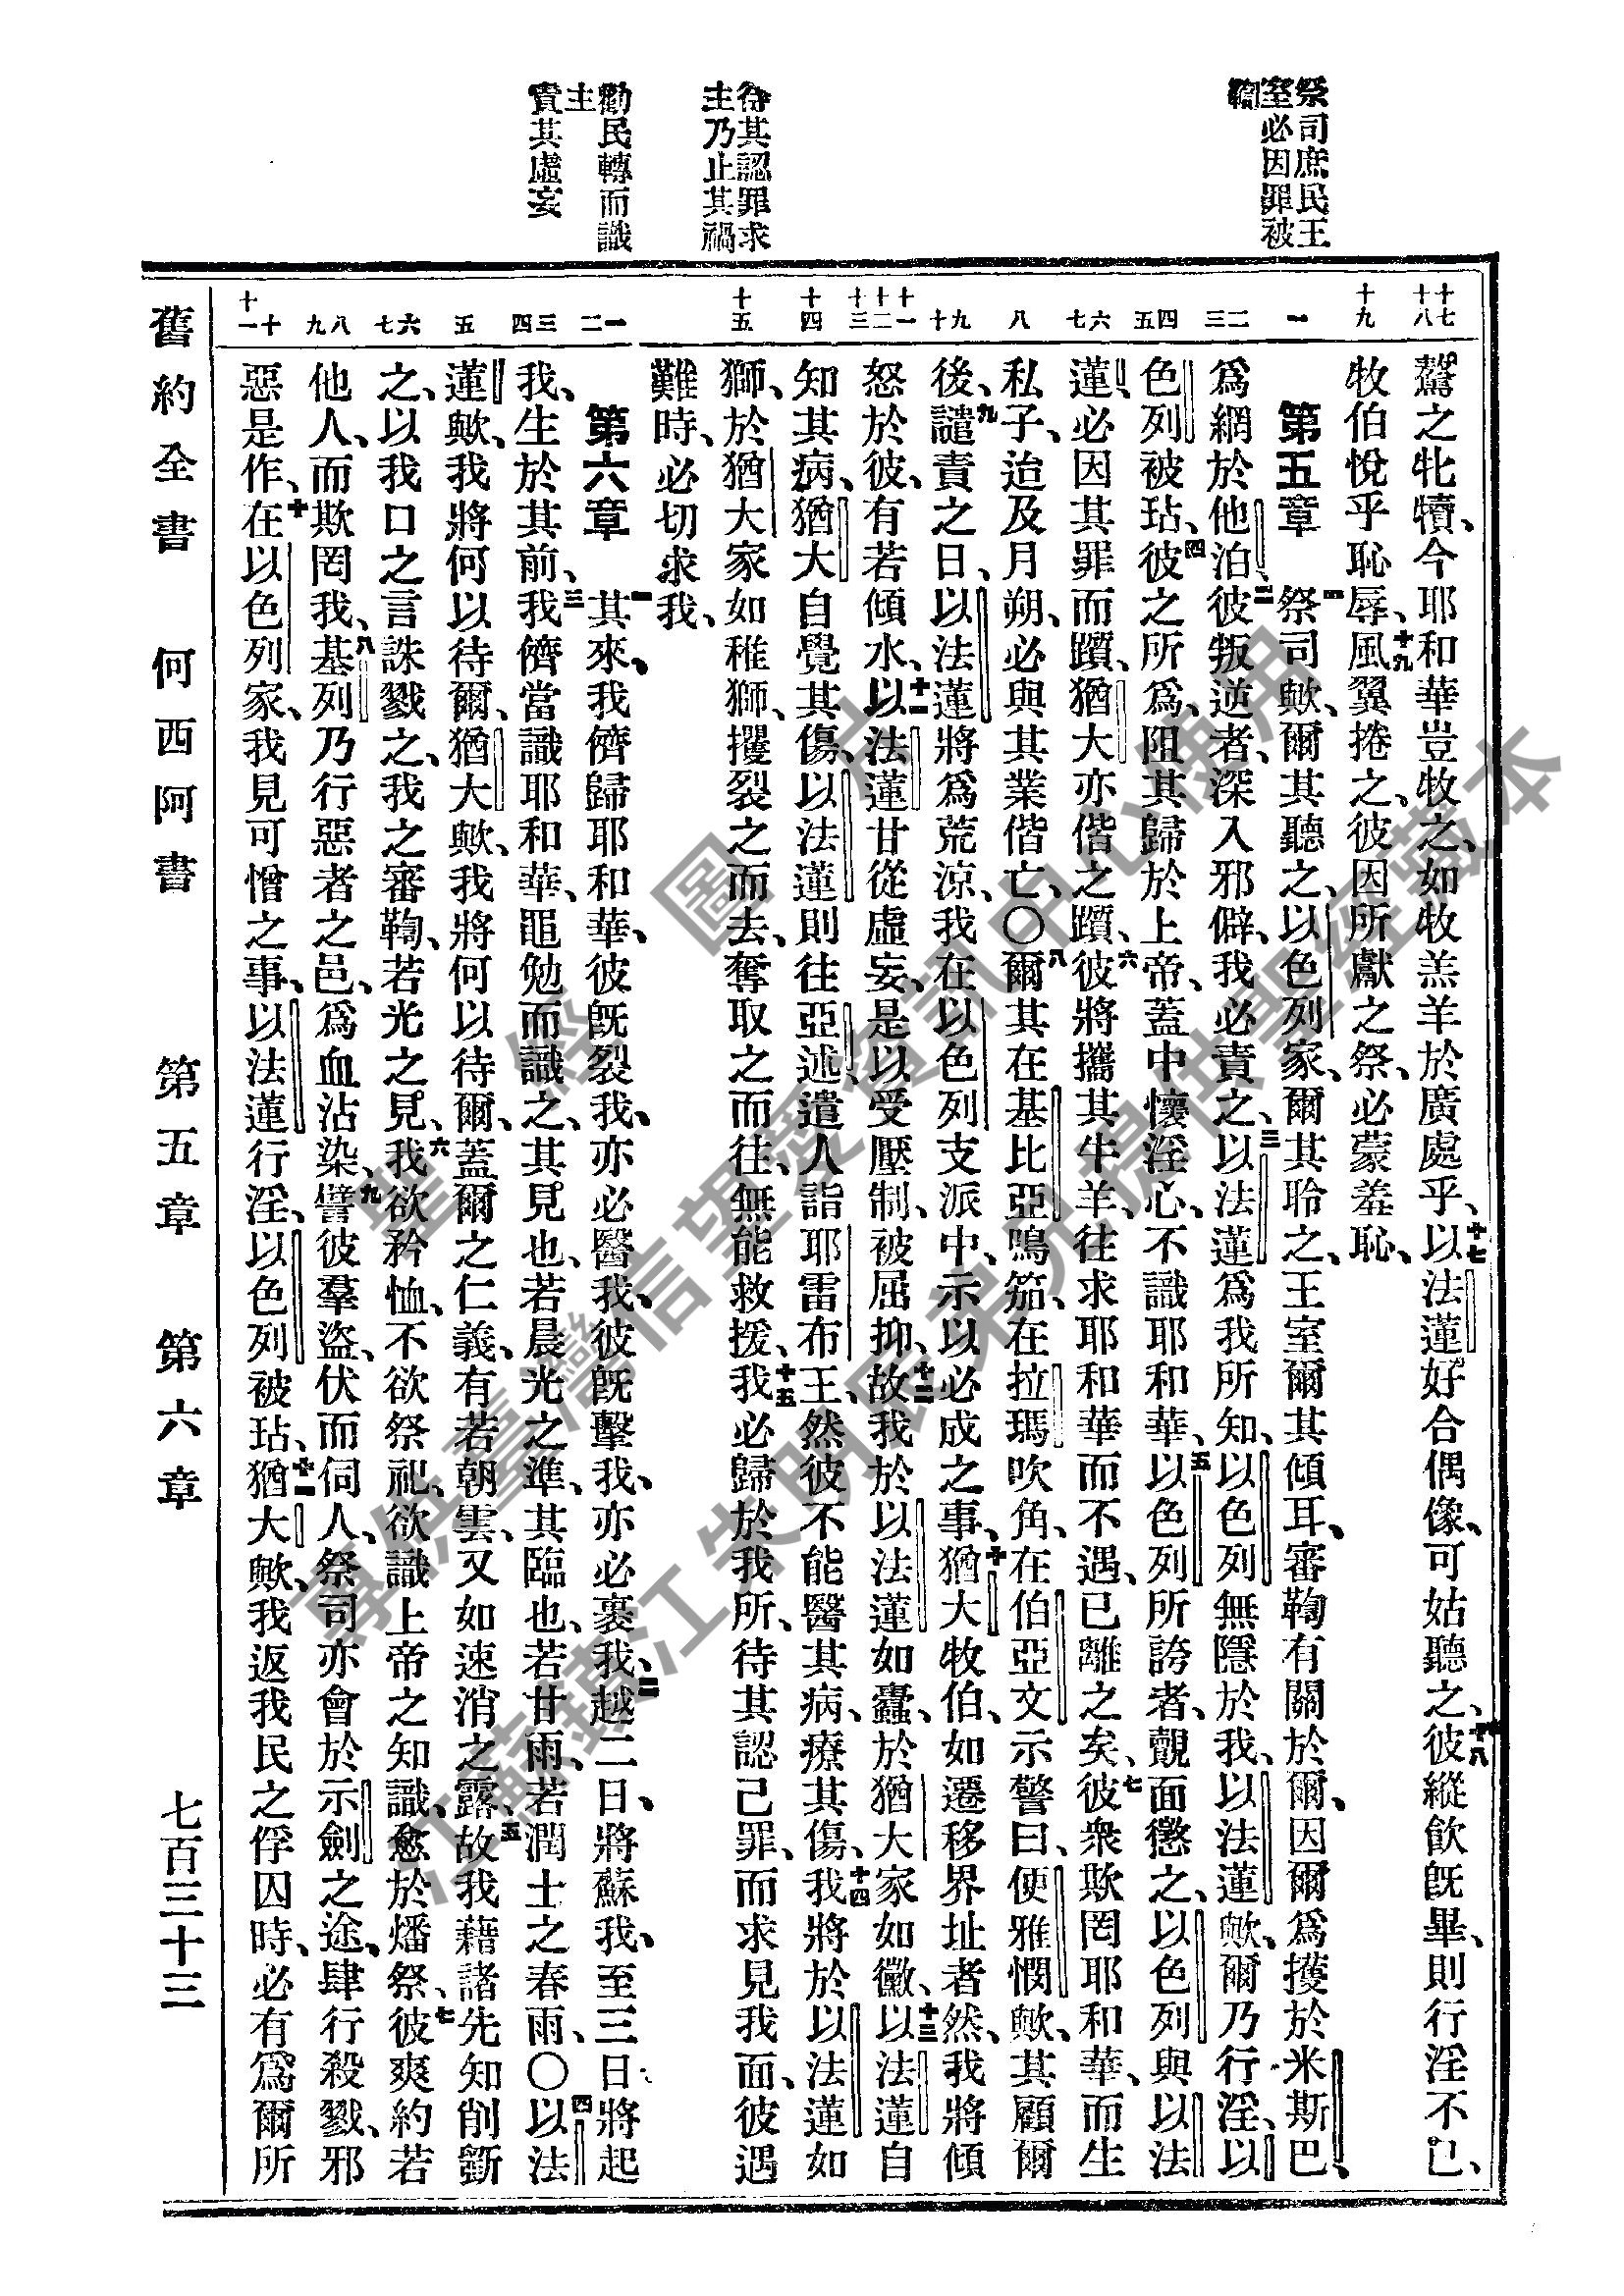 祭司庶民王
室必因罪被
待其認罪求
主乃止其禍
勸民轉而識
主
責其虛妄
十七
十八
十九
一
二
三
四
五
六
七
八
九
十
十一
十二
十三
十四
十五
一
二
三
四
五
六
七
八
九
十
十一
驁之牝犢、今耶和華豈牧之、如牧羔羊於廣處乎、十七以法蓮好合偶像、可姑聽之、十八彼縱飲既畢、則行淫不已、
牧伯悅乎恥辱、十九風翼捲之、彼因所獻之祭、必蒙羞恥、
第五章 一祭司歟、爾其聽之、以色列家、爾其聆之、王室爾其傾耳、審鞫有關於爾、因爾爲擭於米斯巴、
爲網於他泊、二彼叛逆者、深入邪僻、我必責之、三以法蓮爲我所知、以色列無隱於我、以法蓮歟、爾乃行淫、以
色列被玷、四彼之所爲、阻其歸於上帝、蓋中懷淫心、不識耶和華、五以色列所誇者、覿面懲之、以色列與以法
蓮、必因其罪而躓、猶大亦偕之躓、六彼將攜其牛羊、往求耶和華而不遇、已離之矣、七彼衆欺罔耶和華、而生
私子、迨及月朔、必與其業偕亡、〇八爾其在基比亞鳴笳、在拉瑪吹角、在伯亞文示警曰、便雅憫歟、其顧爾
後、九譴責之日、以法蓮將爲荒涼、我在以色列支派中、示以必成之事、十猶大牧伯、如遷移界址者然、我將傾
怒於彼、有若傾水、十一以法蓮甘從虛妄、是以受壓制、被屈抑、十二故我於以法蓮如蠹、於猶大家如黴、十三以法蓮自
知其病、猶大自覺其傷、以法蓮則往亞述、遣人詣耶雷布王、然彼不能醫其病、療其傷、十四我將於以法蓮如
獅、於猶大家如稚獅、攫裂之而去、奪取之而往、無能救援、十五我必歸於我所、待其認己罪、而求見我面、彼遇
難時、必切求我、
第六章 一其來、我儕歸耶和華、彼既裂我、亦必醫我、彼既擊我、亦必裹我、二越二日、將蘇我、至三日將起
我、生於其前、三我儕當識耶和華、黽勉而識之、其見也、若晨光之準、其臨也、若甘雨、若潤土之春雨、〇四以法
蓮歟、我將何以待爾、猶大歟、我將何以待爾、蓋爾之仁義、有若朝雲、又如速消之露、五故我藉諸先知削斵
之、以我口之言誅戮之、我之審鞫、若光之見、六我欲矜恤、不欲祭祀、欲識上帝之知識、愈於燔祭、七彼爽約若
他人、而欺罔我、八基列乃行惡者之邑、爲血沾染、九譬彼羣盜、伏而伺人、祭司亦會於示劍之途、肆行殺戮、邪
惡是作、十在以色列家、我見可憎之事、以法蓮行淫、以色列被玷、十一猶大歟、我返我民之俘囚時、必有爲爾所
舊約全書 何西阿書 第五章 第六章 七百三十三
聖經圖片
專供臺灣信望愛資訊中心使用
江蘇鎮江朱明辰弟兄提供聖經藏本